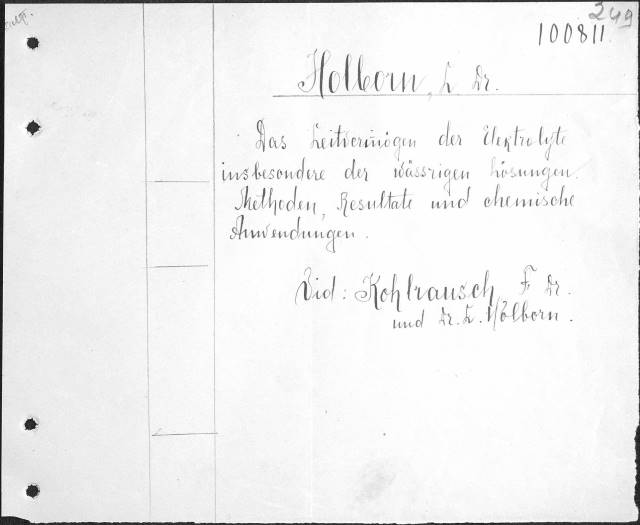 249
100811
Holborn, L. Dr.
Das Leitvermögen der Elektrolyte
insbesondere der wässrigen Lösungen.
Methoden, Resultate und chemische
Anwendungen.
Vid: Kohlrausch, F. Dr.
und Dr. L. Holborn.